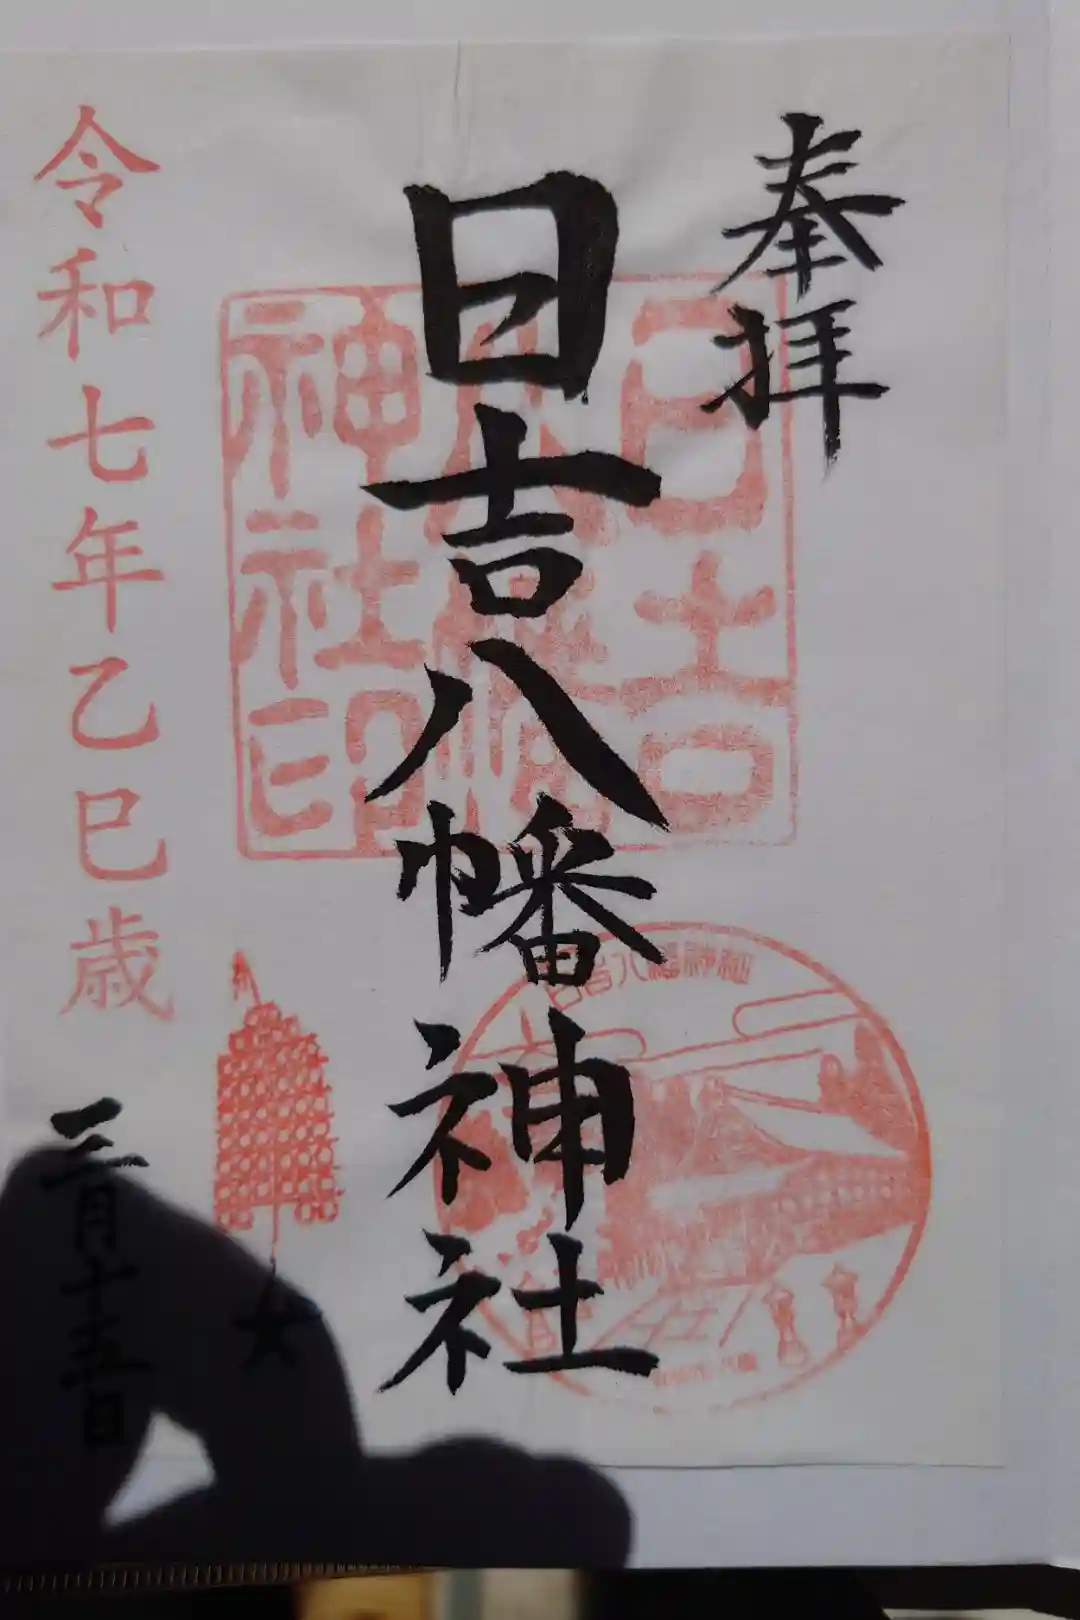 奉拝
日吉八幡神社
日吉八幡神社印
日吉八幡神社
令和七年乙巳歳
三月十五日